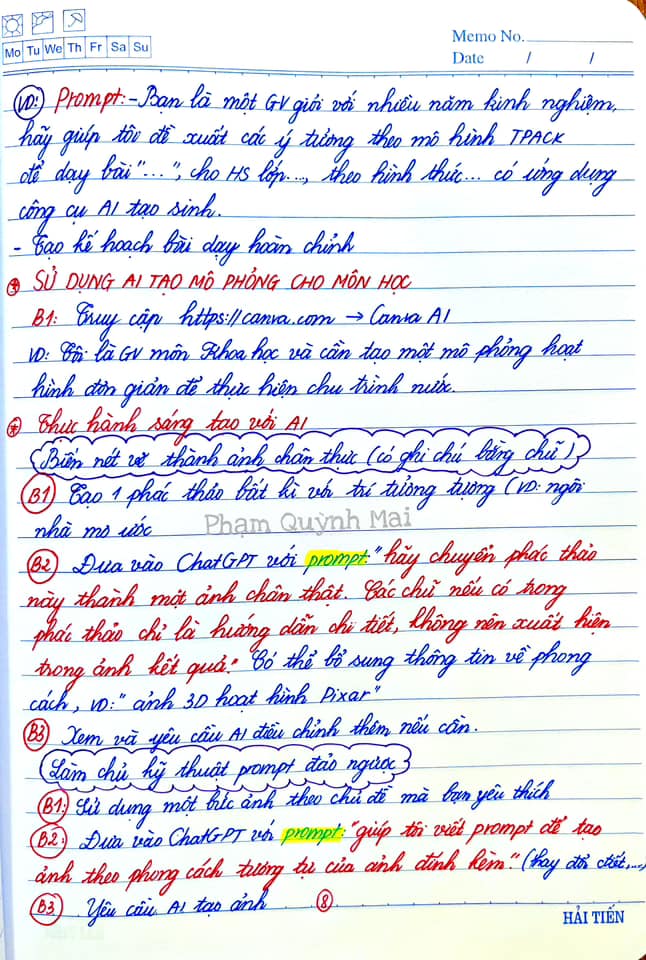 Mo Tu We Th Fr Sa Su
Memo No.
Date / /
VD: Prompt: - Bạn là một GV giỏi với nhiều năm kinh nghiệm,
hãy giúp tôi đề xuất các ý tưởng theo mô hình TPACK
để dạy bài "...", cho HS lớp..., theo hình thức... có ứng dụng
công cụ AI tạo sinh.
- Tạo kế hoạch bài dạy hoàn chỉnh
* SỬ DỤNG AI TẠO MÔ PHỎNG CHO MÔN HỌC
B1: Truy cập https://canva.com → Canva AI
VD: Tôi là GV môn Khoa học và cần tạo một mô phỏng hoạt
hình đơn giản để thực hiện chu trình nước.
* Thực hành sáng tạo với AI
Biến nét vẽ thành ảnh chân thực (có ghi chú bằng chữ)
B1 Tạo 1 phác thảo bất kì với trí tưởng tượng (VD: ngôi
nhà mơ ước
Phạm Quỳnh Mai
B2 Đưa vào ChatGPT với prompt: "hãy chuyển phác thảo
này thành một ảnh chân thật. Các chữ nếu có trong
phác thảo chỉ là hướng dẫn chi tiết, không nên xuất hiện
trong ảnh kết quả." Có thể bổ sung thông tin về phong
cách, VD: "ảnh 3D hoạt hình Pixar"
B3 Xem và yêu cầu AI điều chỉnh thêm nếu cần.
Làm chủ kỹ thuật prompt đảo ngược
B1: Sử dụng một bức ảnh theo chủ đề mà bạn yêu thích
B2: Đưa vào ChatGPT với prompt: "giúp tôi viết prompt để tạo
ảnh theo phong cách tương tự của ảnh đính kèm". (hay đổi ctiết,...)
B3 Yêu cầu AI tạo ảnh
8
HẢI TIẾN